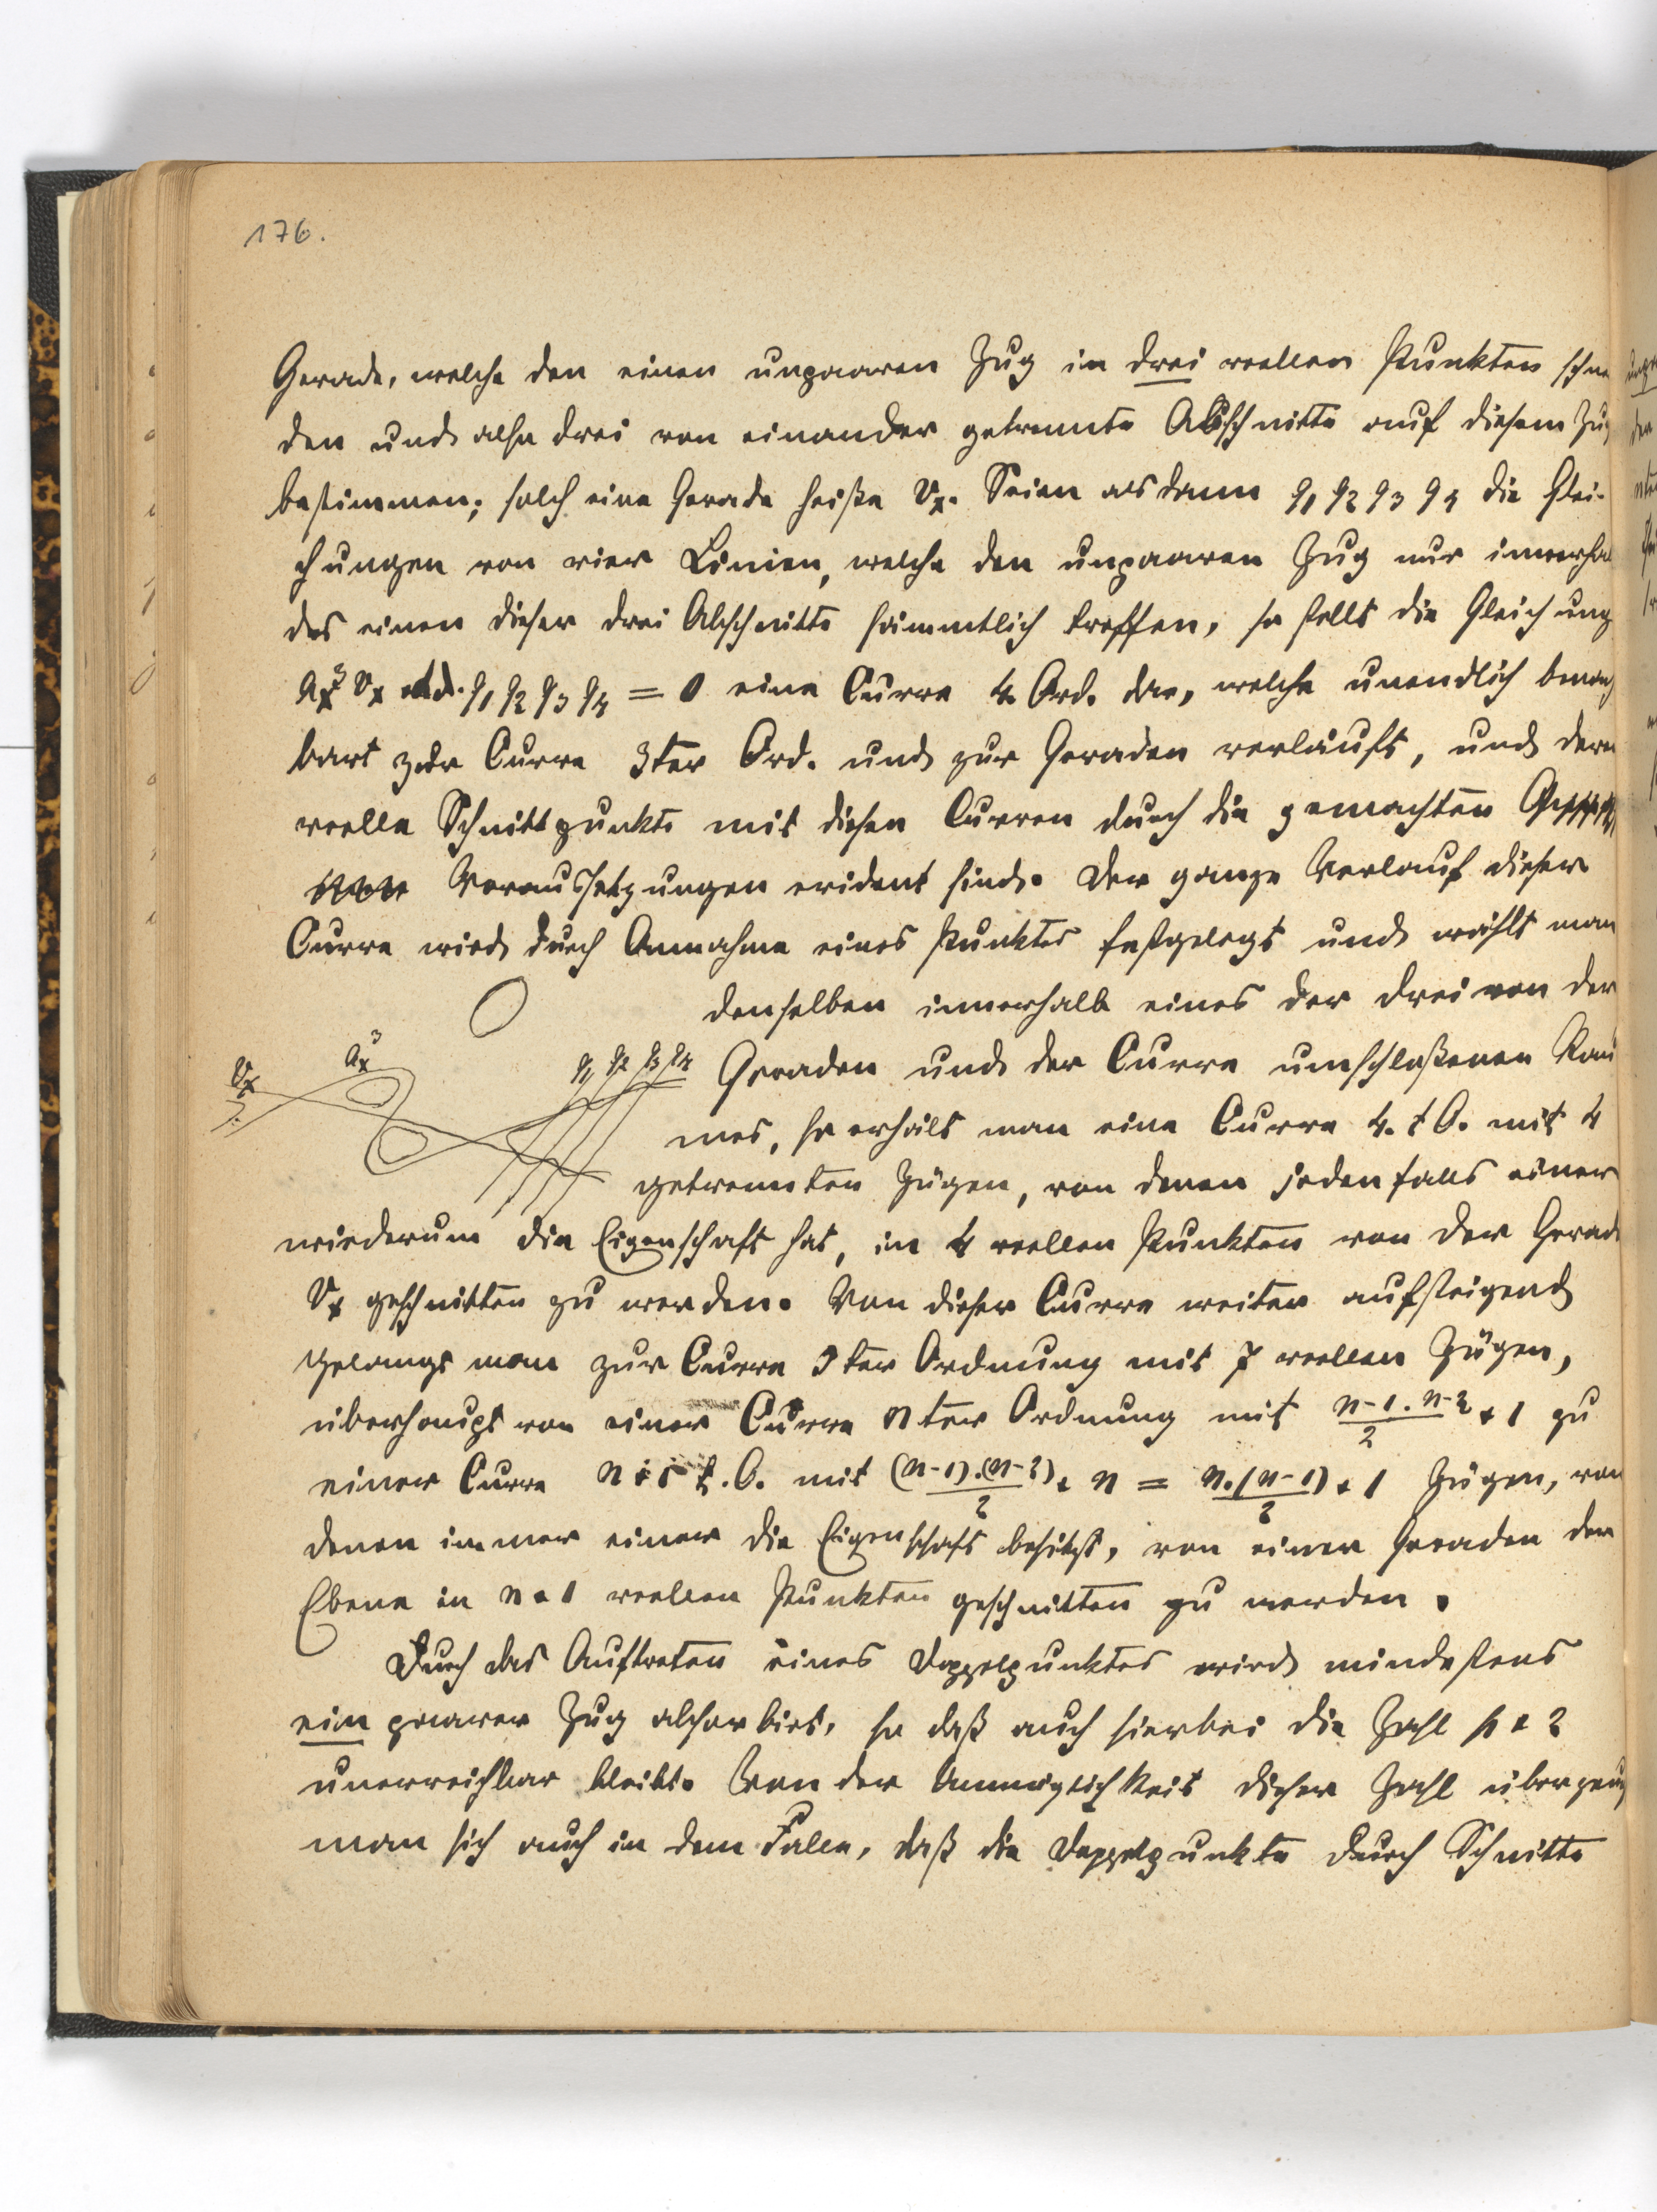 176.
Gerade, welche den einen unpaaren Zug in drei reellen Punkten schnei
den und also drei von einander getrennte Abschnitte auf diesem Zug
bestimmen; solch eine Gerade heiße vₓ. Seien alsdann q₁ q₂ q₃ q₄ die Glei-
chungen von vier Linien, welche den unpaaren Zug nur innerhal
des einen dieser drei Abschnitte sämmtlich treffen, so stellt die Gleichung
aₓ³ vₓ + d. q₁ q₂ q₃ q₄ = 0 eine Curve 4. Ord. dar, welche unendlich benach
bart zur Curve 3ter Ord. und zur Geraden verläuft, und deren
reelle Schnittpunkte mit diesen Curven durch die gemachten
Voraussetzungen evident sind. Der ganze Verlauf dieser
Curve wird durch Annahme eines Punktes festgelegt und wählt man
denselben innerhalb eines der drei von der
vₓ aₓ³ q₁ q₂ q₃ q₄ Geraden und der Curve umschloßenen Rau
mes, so erhält man eine Curve 4. t O. mit 4
getrennten Zügen, von denen jedenfalls einer
wiederum die Eigenschaft hat, in 4 reellen Punkten von der Gerade
vₓ geschnitten zu werden. Von dieser Curve weiter aufsteigend
gelangt man zur Curve 5ter Ordnung mit 7 reellen Zügen,
überhaupt von einer Curve nter Ordnung mit (n-1 . n-2)/2 + 1 zu
einer Curve n+1 t. O. mit ((n-1).(n-2))/2 + n = (n.(n-1))/2 + 1 Zügen, von
denen immer einer die Eigenschaft besitzt, von einer Geraden der
Ebene in n+1 reellen Punkten geschnitten zu werden.
Durch das Auftreten eines Doppelpunktes wird mindestens
ein paarer Zug absorbirt, so daß auch hierbei die Zahl p + 2
unerreichbar bleibt. Von der Unmöglichkeit dieser Zahl überzeugt
man sich auch in dem Falle, daß die Doppelpunkte durch Schnitte